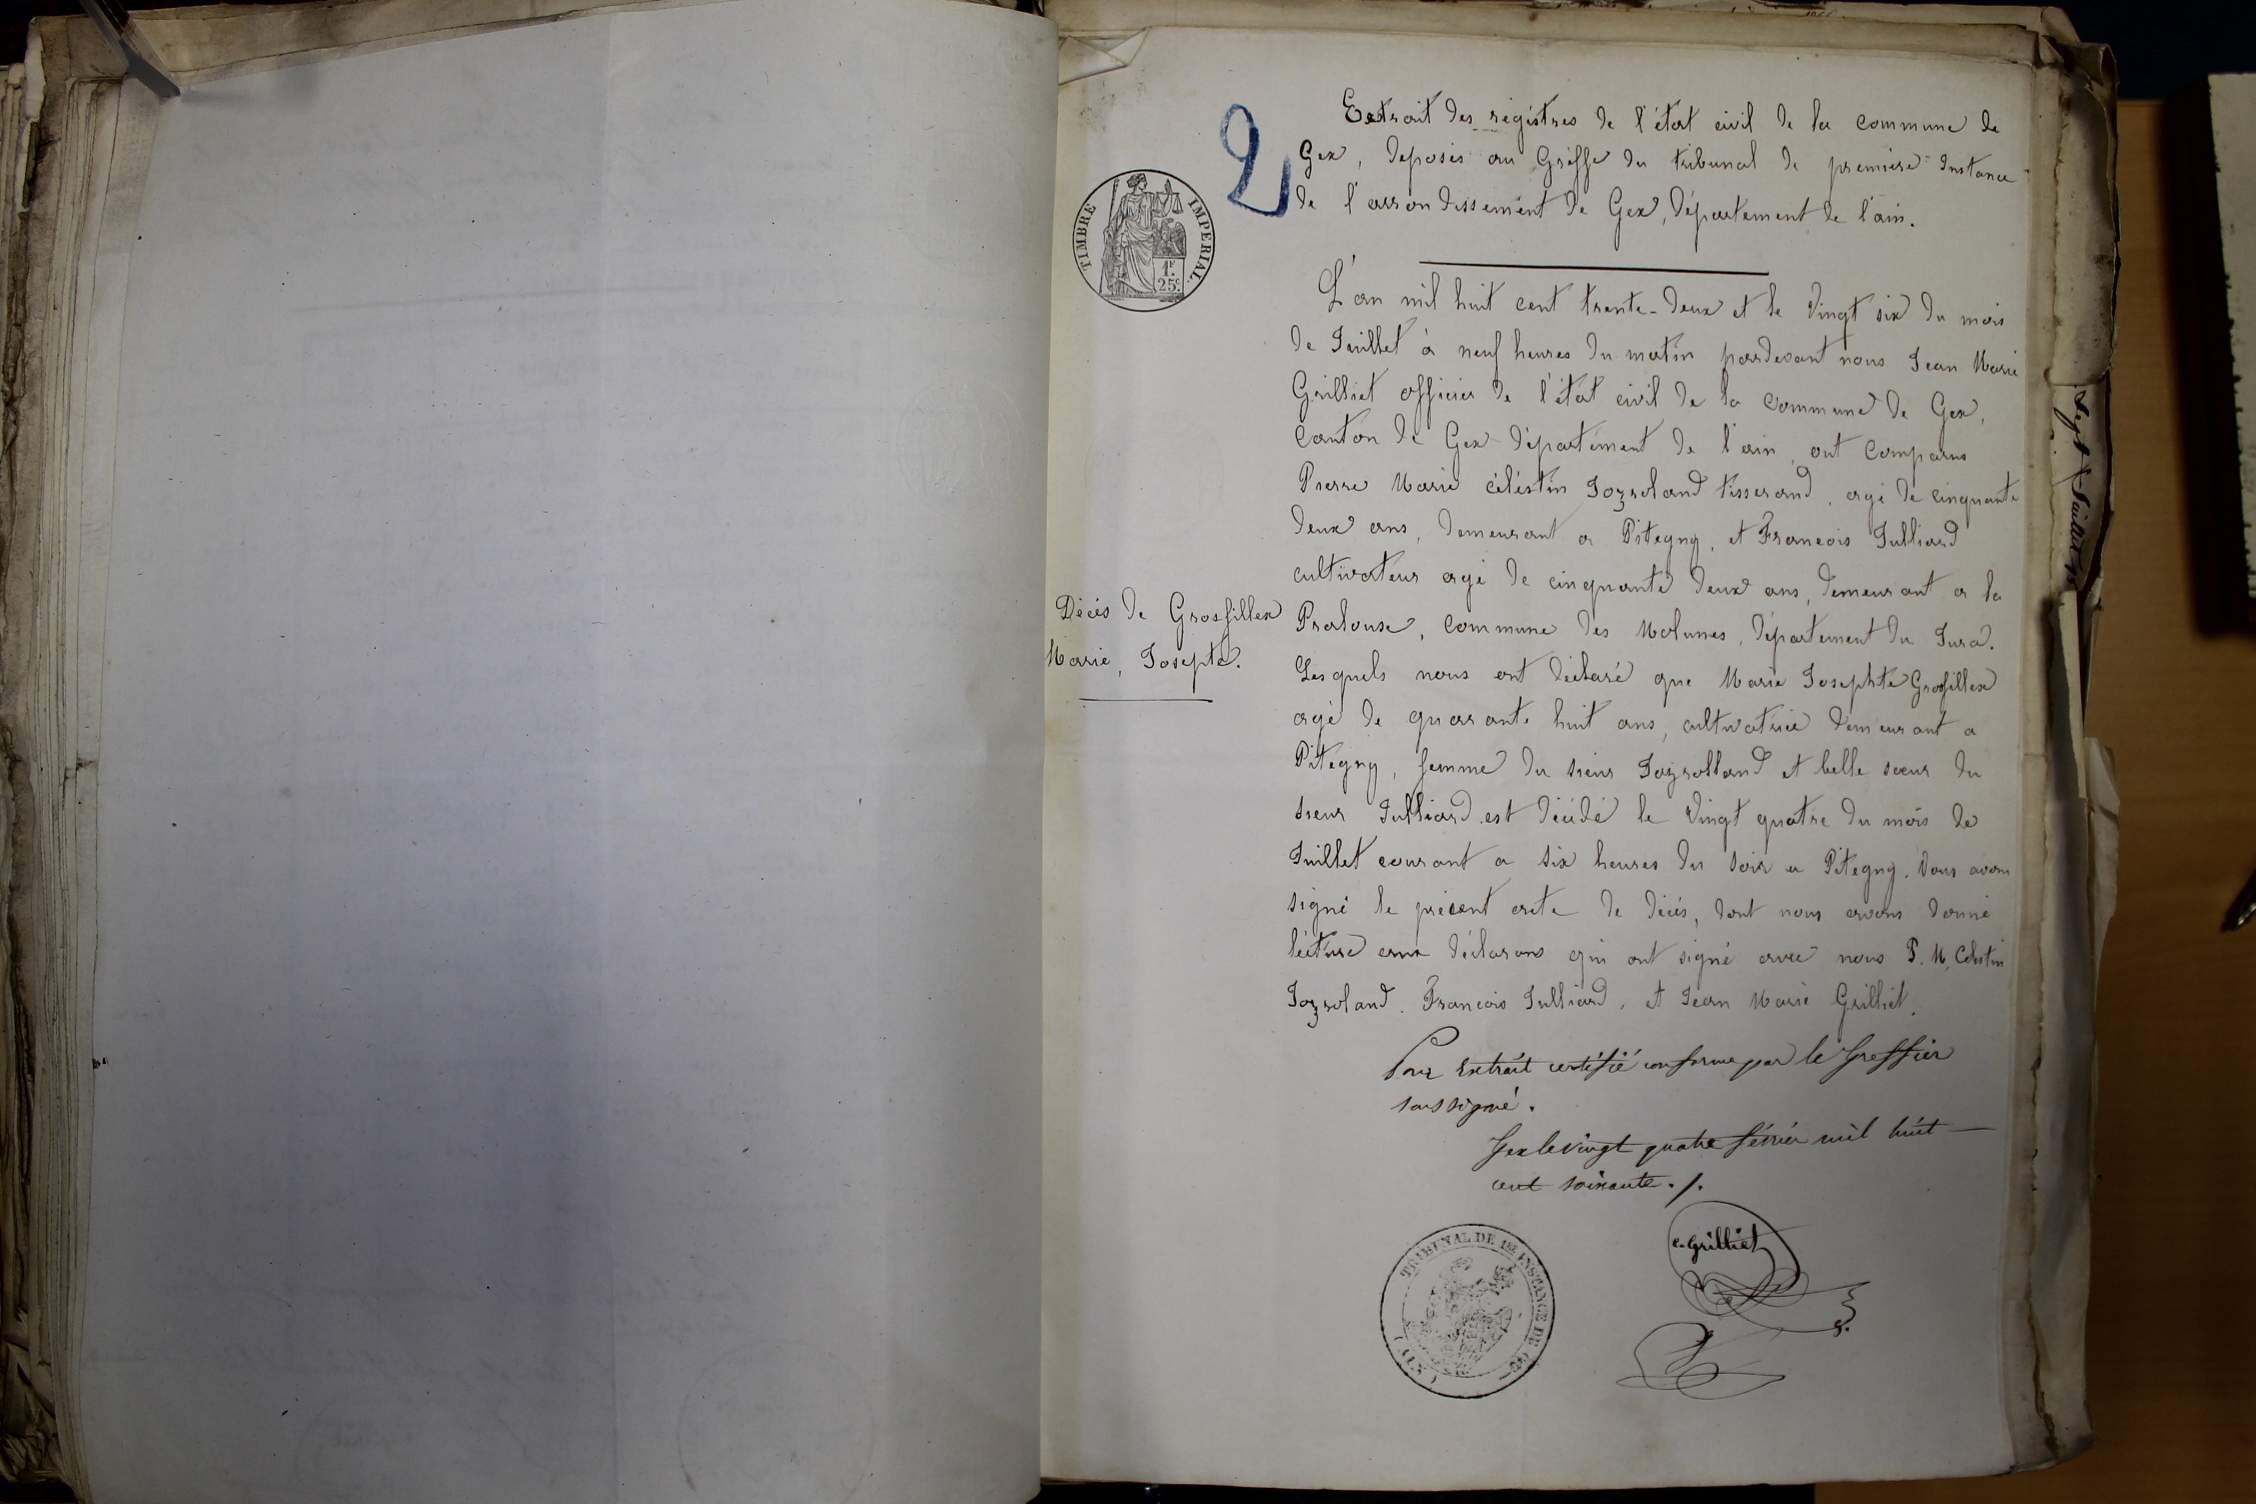 2
Extrait des régistres de l'état civil de la commune de
Gex, déposés au Gréffe du tribunal de première Instance
de l'arrondissement de Gex, département de l'ain.
TIMBRE IMPERIAL
1F.
25c.
L'an mil huit cent trente-deux et le vingt six du mois
de Juillet à neuf heures du matin pardevant nous Jean Marie
Grilliet officier de l'état civil de la commune de Gex,
canton de Gex département de l'ain, ont comparus
Pierre Marie céléstin Jozroland tisserand, agé de cinquante
deux ans, demeurant a Pitegny, et Francois Julliard
cultivateur agé de cinquante deux ans, demeurant a la
Décés de Grosfillex
Marie, Josepte.
Pralouse, commune des Molunes, département du Jura.
Lesquels nous ont déclaré que Marie Josephte Grosfillex
agé de quarante huit ans, cultivatrice demeurant a
Pitegny, femme du sieur Jozrolland et belle soeur du
sieur Julliard est décédé le vingt quatre du mois de
Juillet courant a six heures du soir a Pitegny. Nous avons
signé le présent acte de décés, dont nous avons donné
lécture aux déclarans qui ont signé avec nous P. M. Celestin
Jozroland. Francois Julliard, et Jean Marie Grilliet.
Pour Extrait certifié conforme par le Greffier
soussigné.
Gex le vingt quatre février mil huit
cent soixante ./.
C. Grilliet
TRIBUNAL DE 1ERE INSTANCE DE GEX
(AIN)